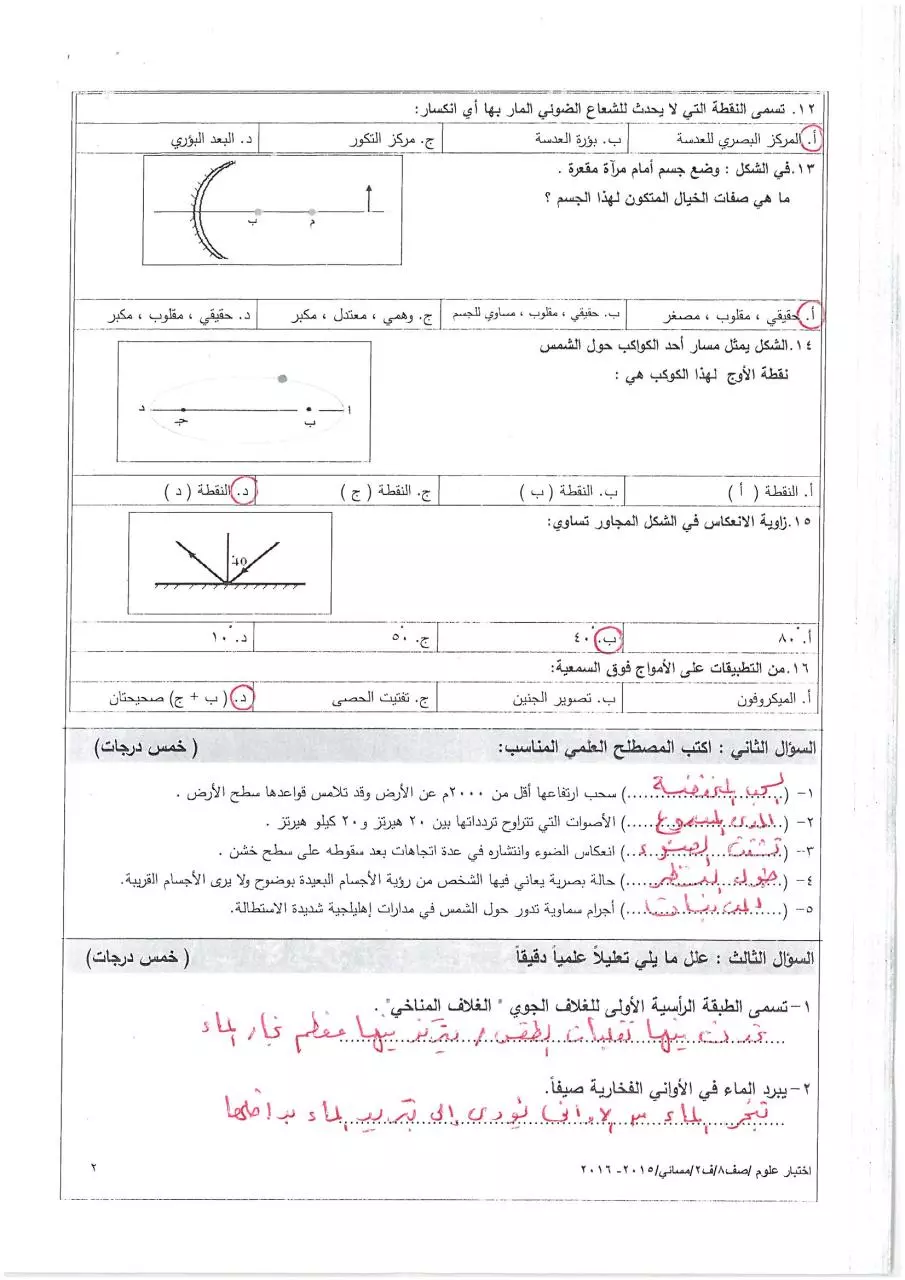 ١٢. تسمى النقطة التي لا يحدث للشعاع الضوئي المار بها أي انكسار:
أ. المركز البصري للعدسة ب. بؤرة العدسة ج. مركز التكور د. البعد البؤري
١٣.في الشكل : وضع جسم أمام مرآة مقعرة .
ما هي صفات الخيال المتكون لهذا الجسم ؟
م ب
أ. حقيقي ، مقلوب ، مصغر ب. حقيقي ، مقلوب ، مساوي للجسم ج. وهمي ، معتدل ، مكبر د. حقيقي ، مقلوب ، مكبر
١٤.الشكل يمثل مسار أحد الكواكب حول الشمس
نقطة الأوج لهذا الكوكب هي :
أ ب جـ د
أ. النقطة ( أ ) ب. النقطة ( ب ) ج. النقطة ( ج ) د. النقطة ( د )
١٥.زاوية الانعكاس في الشكل المجاور تساوي:
40
أ. ٨٠° ب. ٤٠° ج. ٥٠° د. ١٠°
١٦.من التطبيقات على الأمواج فوق السمعية:
أ. الميكروفون ب. تصوير الجنين ج. تفتيت الحصى د. ( ب + ج) صحيحتان
السؤال الثاني : اكتب المصطلح العلمي المناسب: ( خمس درجات)
١- (السحب المنخفضة) سحب ارتفاعها أقل من ٢٠٠٠م عن الأرض وقد تلامس قواعدها سطح الأرض .
٢- (المدى المسموع) الأصوات التي تتراوح تردداتها بين ٢٠ هيرتز و ٢٠ كيلو هيرتز .
٣- (تشتت الضوء) انعكاس الضوء وانتشاره في عدة اتجاهات بعد سقوطه على سطح خشن .
٤- (طول النظر) حالة بصرية يعاني فيها الشخص من رؤية الأجسام البعيدة بوضوح ولا يرى الأجسام القريبة.
٥- (المذنبات) أجرام سماوية تدور حول الشمس في مدارات إهليلجية شديدة الاستطالة.
السؤال الثالث : علل ما يلي تعليلاً علمياً دقيقاً ( خمس درجات)
١-تسمى الطبقة الرأسية الأولى للغلاف الجوي " الغلاف المناخي".
تحدث فيها تقلبات الطقس / يتركز فيها معظم بخار الماء
٢-يبرد الماء في الأواني الفخارية صيفاً.
تبخر الماء من الأواني يؤدي إلى تبريد الماء بداخلها
اختبار علوم /صف٨/ف٢/مسائي/٢٠١٥- ٢٠١٦ ٢